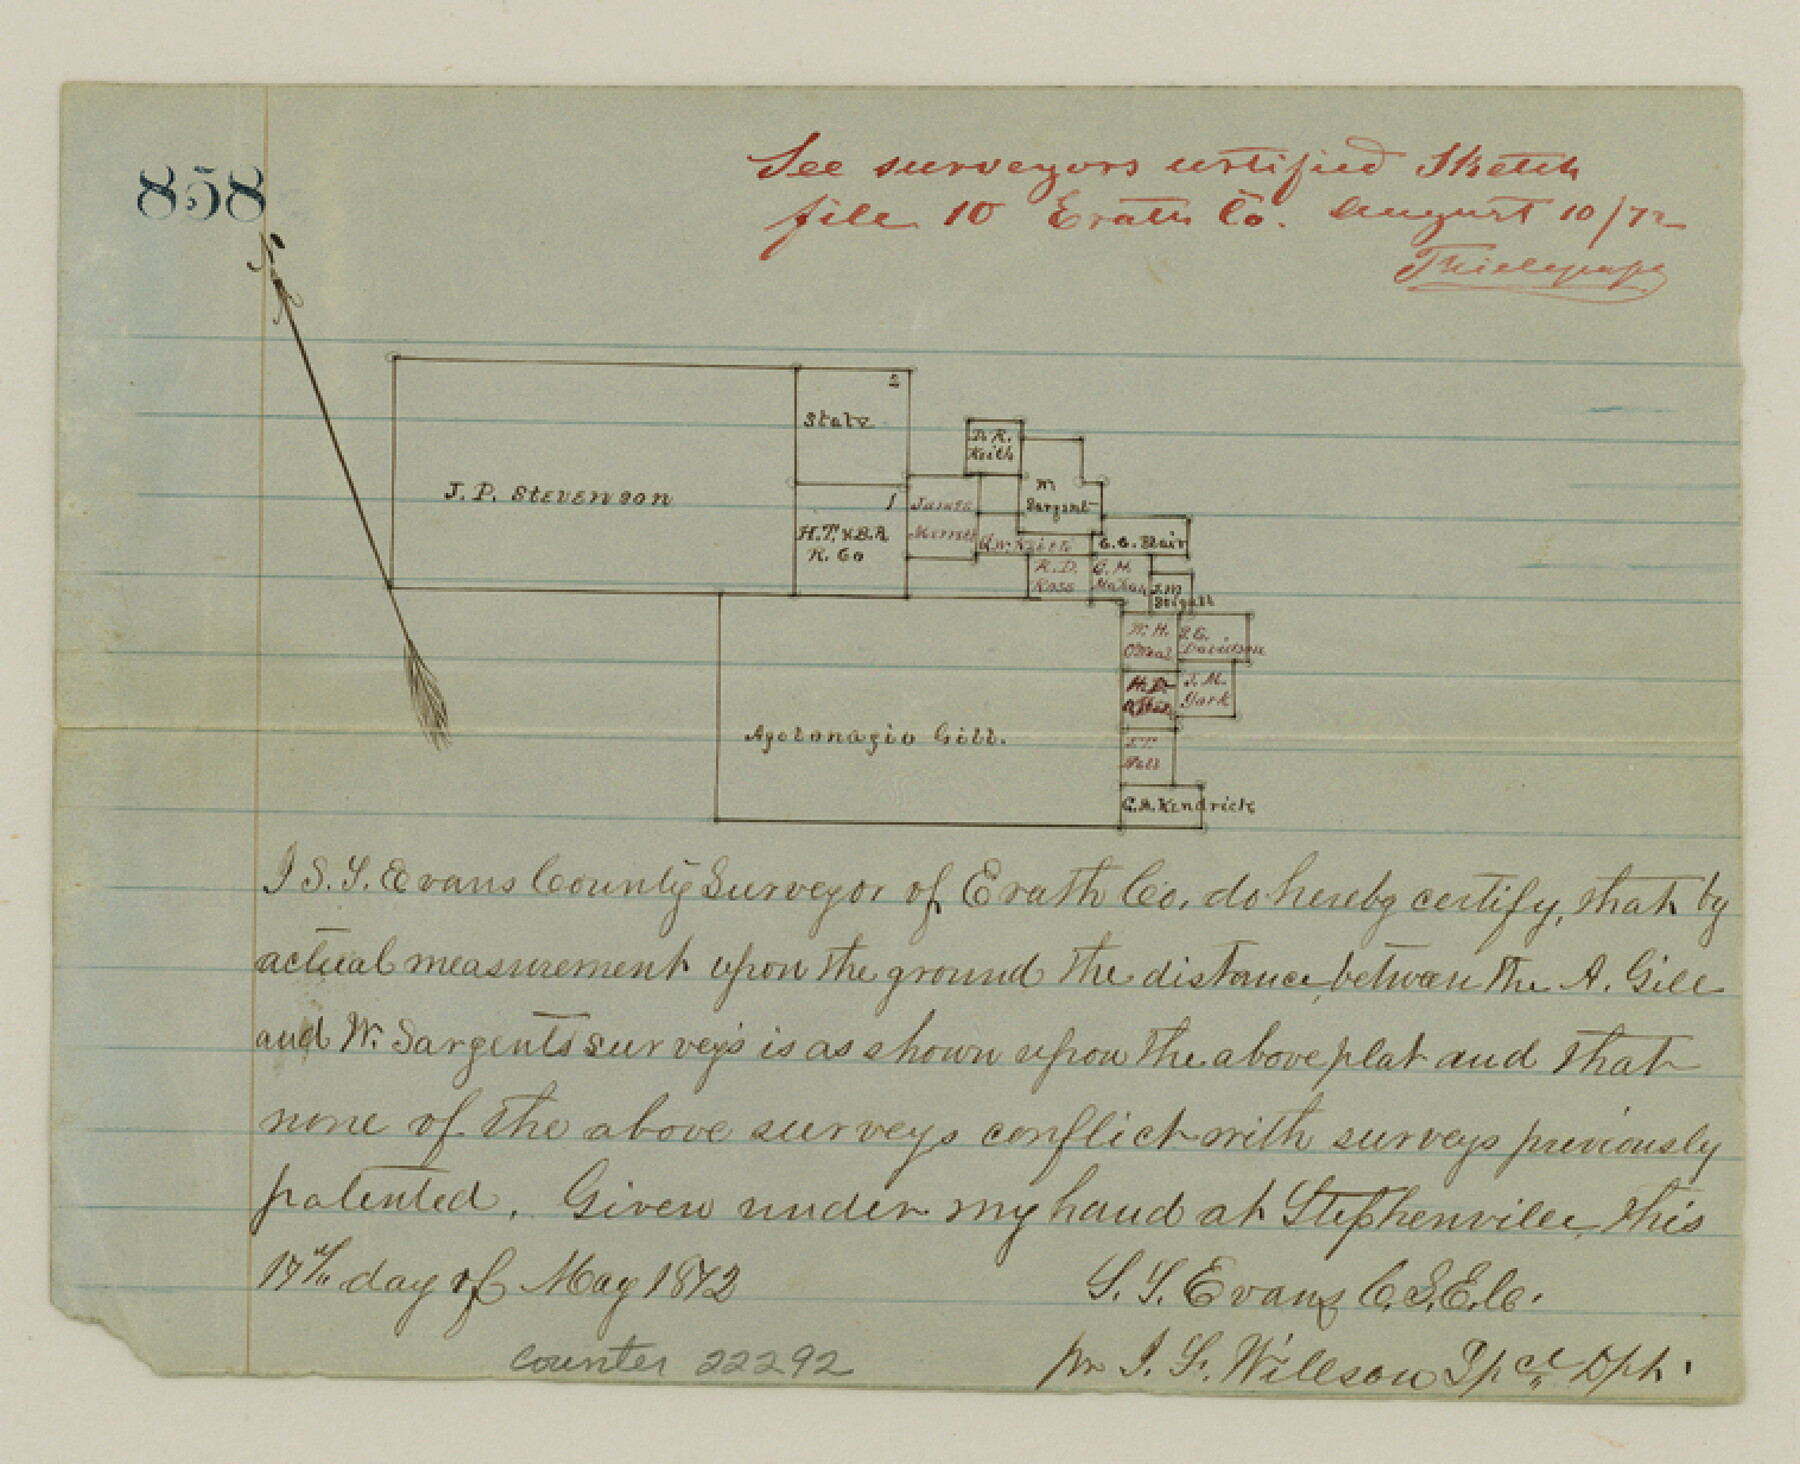 858
See surveyors certified Sketch
file 10 Erath Co. August 10/72
Thielepape
J. P. Stevenson
State
2
1
H. T. & B. R.
R. Co
D. R.
Keith
W
Sargent
James
Merrell
Q. W. Keith
E. C. Blair
R. D.
Ross
G. H.
J. M
W. H.
O'Neal
J. E.
Davidson
H. D.
J. M.
York
Agotonazio Gill.
G. A. Kendrick
I S. S. Evans County Surveyor of Erath Co. do hereby certify, that by
actual measurement upon the ground the distance, between the A. Gill
and W. Sargents surveys is as shown upon the above plat and that
none of the above surveys conflict with surveys previously
patented. Given under my hand at Stephenville, this
17th day of May 1872
S. S. Evans C. S. E. Co.
counter 22292
pr I. S. Willson Spcl Dpt.